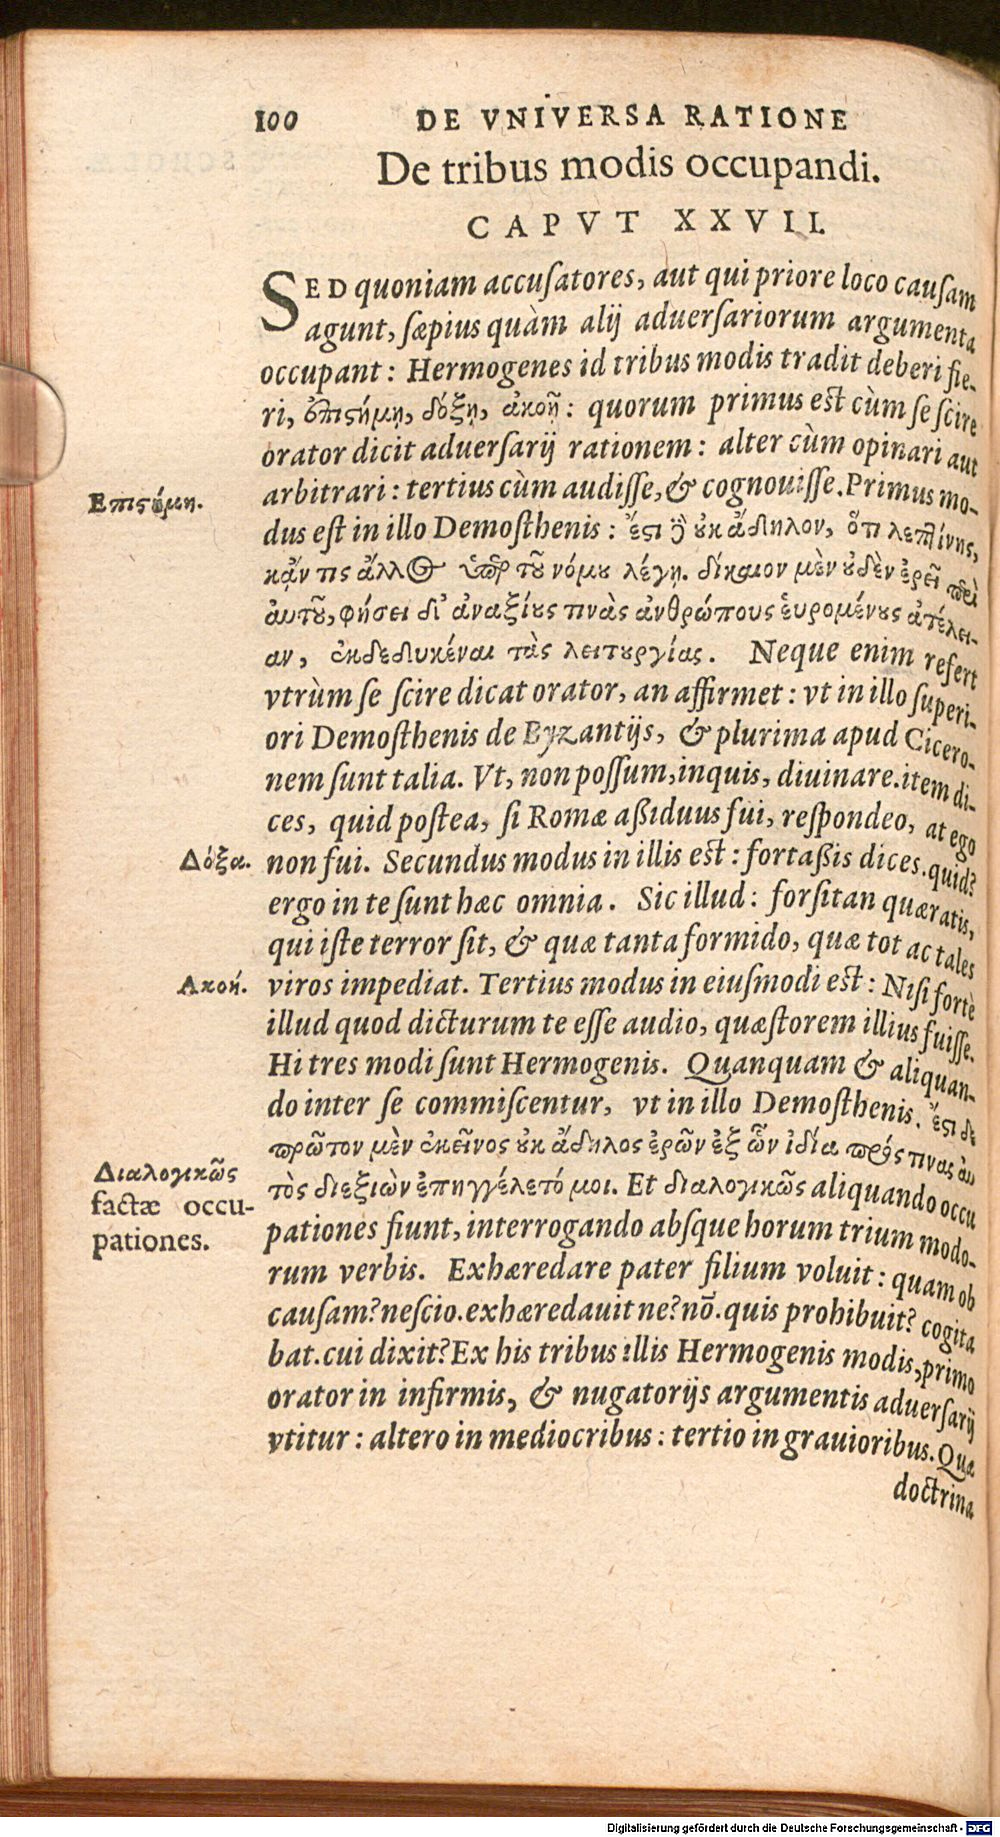 100 DE VNIVERSA RATIONE
De tribus modis occupandi.
CAPVT XXVII.
SED quoniam accuſatores, aut qui priore loco cauſam
agunt, ſæpius quàm alij aduerſariorum argumenta
occupant: Hermogenes id tribus modis tradit deberi fie-
ri, ἐπιςήμῃ, δόξῃ, ἀκοῇ: quorum primus est cùm ſe ſcire
orator dicit aduerſarij rationem: alter cùm opinari aut
Επιςήμη.
arbitrari: tertius cùm audiſſe, & cognouiſſe. Primus mo-
dus eſt in illo Demoſthenis: ἔςι γὰρ οὐκ ἄδηλον, ὅτι λεπτίνης,
κᾄν τις ἄλλος ὑπὲρ τοῦ νόμου λέγῃ. δίκαιον μὲν οὐδὲν ἐρεῖ περὶ
ἀυτοῦ, φήσει δἰ ἀναξίους τινὰς ἀνθρώπους ἑυρομένους ἀτέλει-
αν, ἐκδεδυκέναι τὰς λειτουργίας. Neque enim refert
vtrùm ſe ſcire dicat orator, an affirmet: vt in illo ſuperi-
ori Demoſthenis de Byzantijs, & plurima apud Cicero-
nem ſunt talia. Vt, non poſſum, inquis, diuinare. item di-
ces, quid poſtea, ſi Romæ aßiduus fui, reſpondeo, at ego
Δόξα.
non fui. Secundus modus in illis est: fortaßis dices. quid?
ergo in te ſunt hæc omnia. Sic illud: forſitan quæratis,
qui iſte terror ſit, & quæ tanta formido, quæ tot ac tales
Ακοή.
viros impediat. Tertius modus in eiuſmodi est: Niſi fortè
illud quod dicturum te eſſe audio, quæſtorem illius fuiſſe.
Hi tres modi ſunt Hermogenis. Quanquam & aliquan-
do inter ſe commiſcentur, vt in illo Demoſthenis. ἔςι δὲ
πρῶτον μὲν ἐκεῖνος οὐκ ἄδηλος ἐρῶν ἐξ ὧν ἰδία πρός τινας ἀυ
Διαλογικῶς
factæ occu-
pationes.
τὸς διεξιὼν ἐπηγγέλετό μοι. Et διαλογικῶς aliquando occu
pationes fiunt, interrogando abſque horum trium modo-
rum verbis. Exhæredare pater filium voluit: quam ob
cauſam? neſcio. exhæredauit ne? nõ. quis prohibuit? cogita
bat. cui dixit? Ex his tribus illis Hermogenis modis, primo
orator in infirmis, & nugatorijs argumentis aduerſarij
vtitur: altero in mediocribus: tertio in grauioribus. Quæ
doctrina
Digitalisierung gefördert durch die Deutsche Forschungsgemeinschaft - DFG